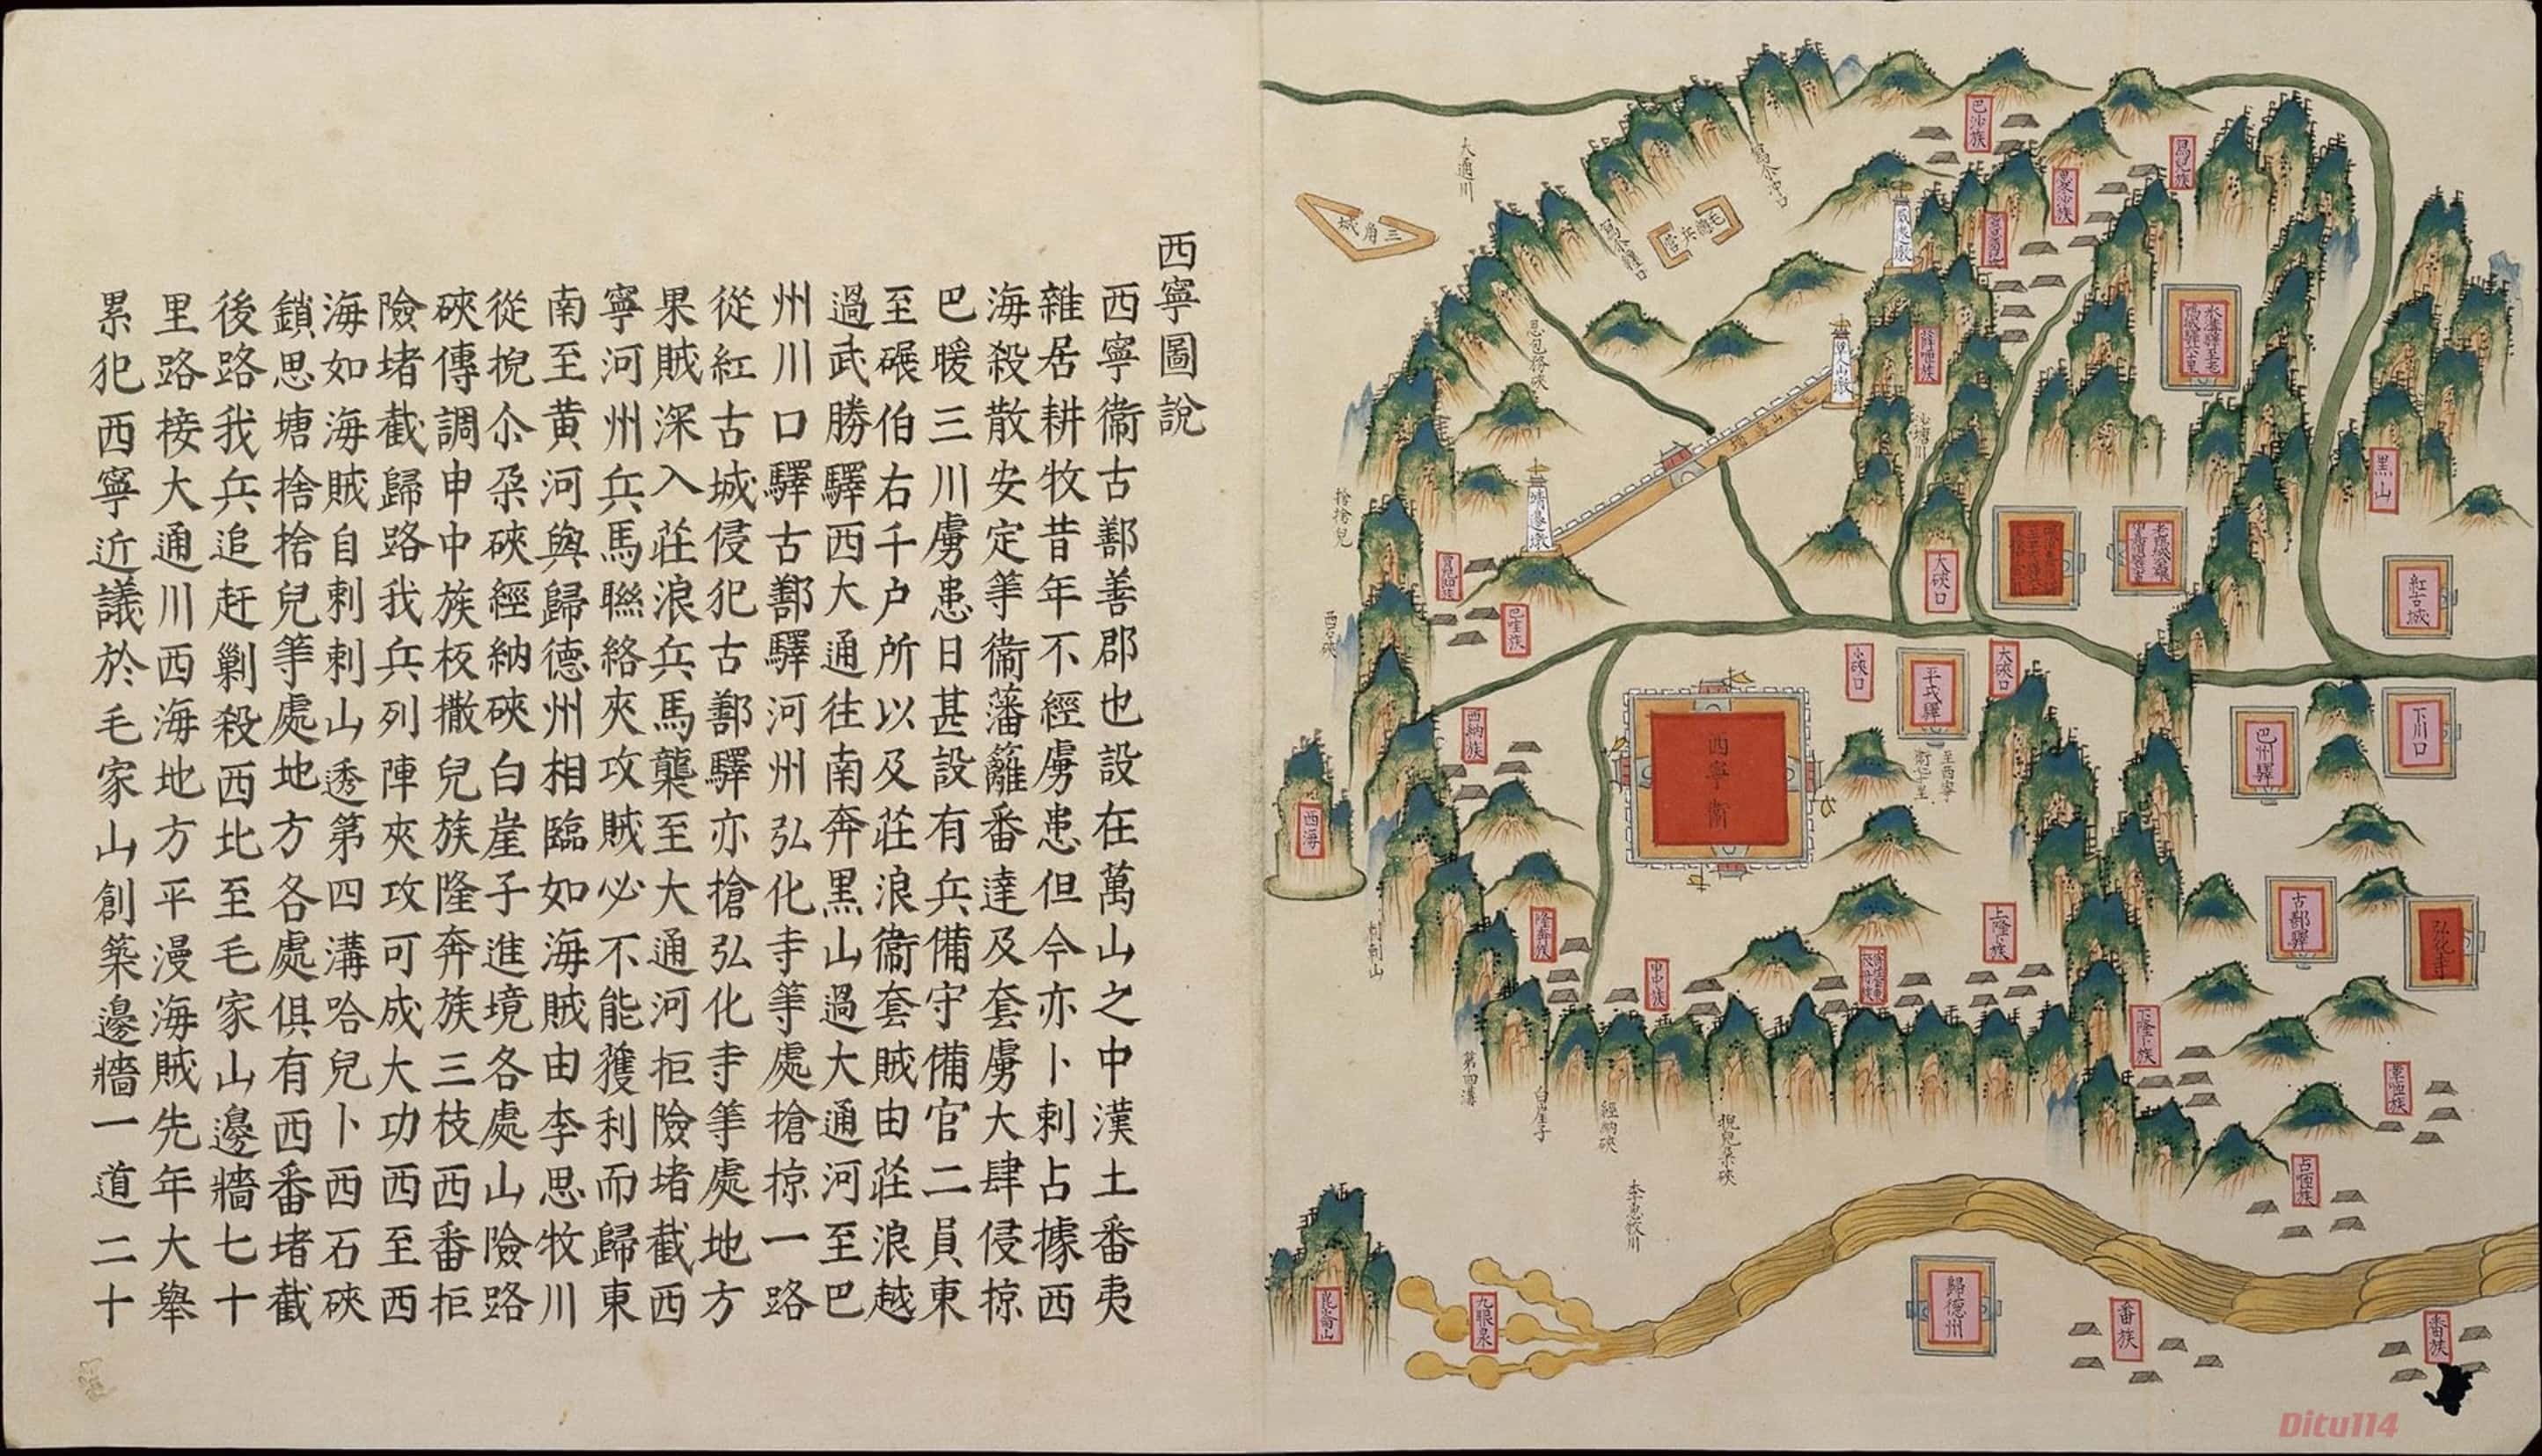 西寧圖說
西寧衞古鄯善郡也設在萬山之中漢土番夷
雜居耕牧昔年不經虜患但今亦卜剌占據西
海殺散安定等衞藩籬番達及套虜大肆侵掠
巴暖三川虜患日甚設有兵備守備官二員東
至碾伯右千户所以及莊浪衞套賊由莊浪越
過武勝驛西大通往南奔黑山過大通河至巴
州川口驛古鄯驛河州弘化寺等處搶掠一路
從紅古城侵犯古鄯驛亦搶弘化寺等處地方
果賊深入莊浪兵馬襲至大通河拒險堵截西
寧河州兵馬聯絡夾攻賊必不能獲利而歸東
南至黃河與歸德州相臨如海賊由李思牧川
從掜尒朶硤經納硤白崖子進境各處山險路
硤傳調申中族板撒兒族隆奔族三枝西番拒
險堵截歸路我兵列陣夾攻可成大功西至西
海如海賊自剌剌山透第四溝哈兒卜西石硤
鎖思塘捨捨兒等處地方各處俱有西番堵截
後路我兵追赶剿殺西北至毛家山邊牆七十
里路接大通川西海地方平漫海賊先年大舉
累犯西寧近議於毛家山創築邊牆一道二十
大通川
三角城
巴沙族
黑山
紅古城
下川口
大硤口
小硤口
大硤口
平戎驛
至西寧
巴州驛
古鄯驛
弘化寺
西寧衞
沙塘川
靖邊墩
捨捨兒
西石硤
巴哇族
西納族
西海
隆奔族
申中族
上隆卜族
下隆卜族
占咂族
第四溝
白崖子
經納硤
李思牧川
崑崙山
九眼泉
歸德州
番族
番族
Ditu114